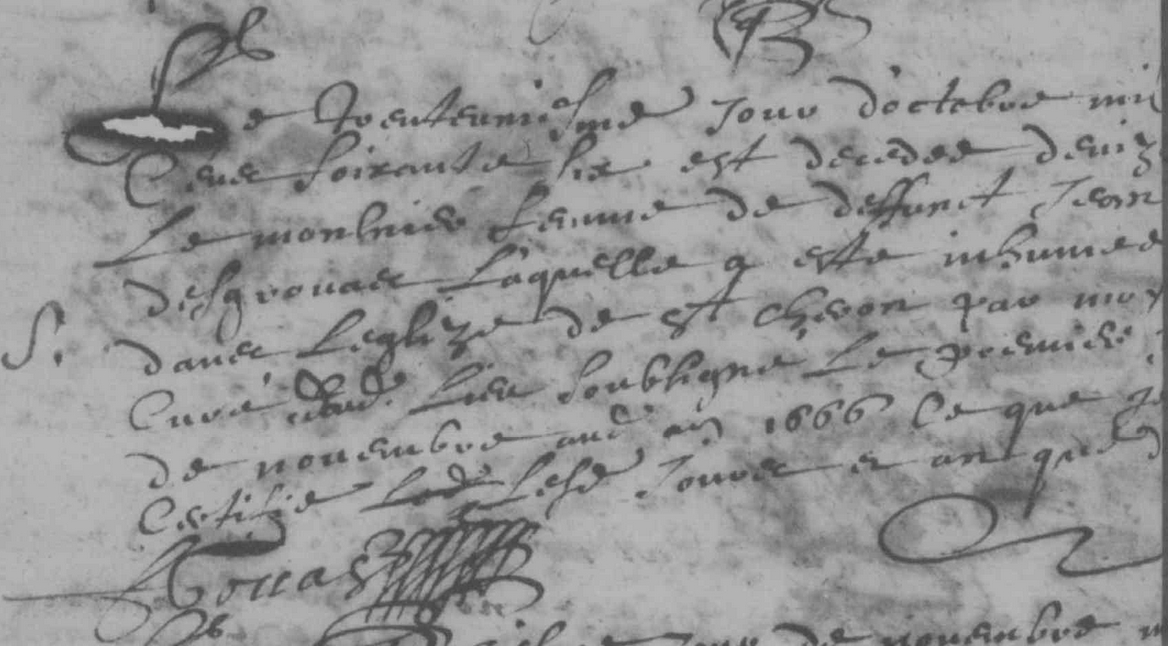 Le trenteuniesme Jour d'octobre mil
Cens soixante six est decedee deniz
Le monhnier femme de deffunct Jean
desgrouas Laquelle a este inhumee
S. dans Leglize de st chevon par moy
Curé dud. Lieu soubsigne Le premier
de novembre aud an 1666 Ce que je
Certifie lesd Jours et an que d
Gouas
Jour de novembre m